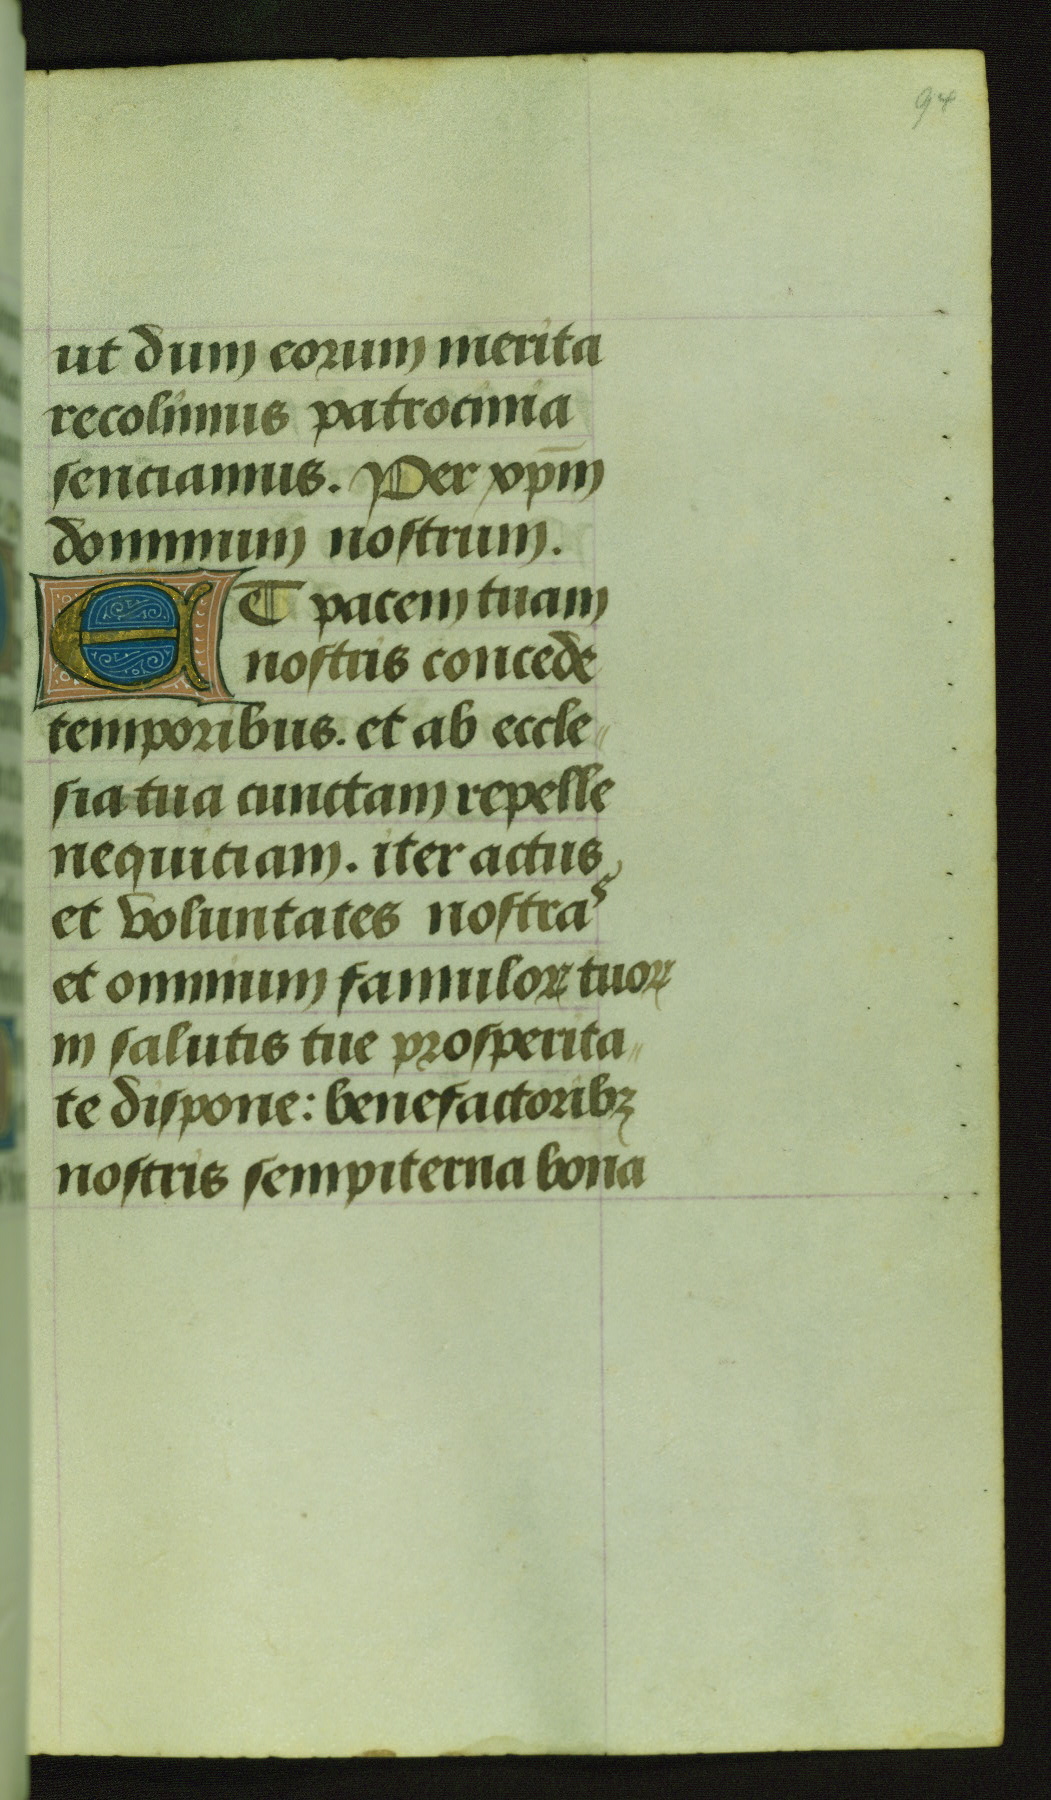 94
ut dum eorum merita
recolimus patrocinia
senciamus. Per xp̄m
dominum nostrum.
ET pacem tuam
nostris concede
temporibus. et ab eccle-
sia tua cunctam repelle
nequiciam. iter actus
et voluntates nostras
et omnium famuloꝝ tuoꝝ
in salutis tue prosperita-
te dispone: benefactoribꝫ
nostris sempiterna bona